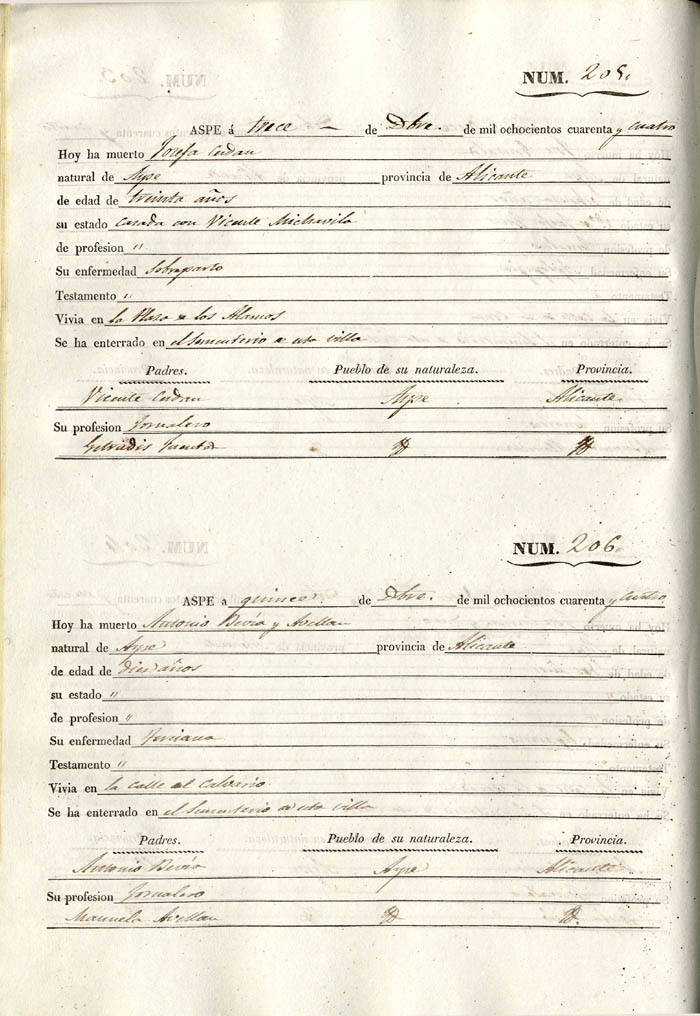 NUM. 205.
ASPE á trece de Dbre. de mil ochocientos cuarenta y cuatro
Hoy ha muerto Josefa Cerdan
natural de Aspe provincia de Alicante
de edad de treinta años
su estado casada con Vicente Michavila
de profesion "
Su enfermedad Sobreparto
Testamento "
Vivia en la Plaza de los Alamos
Se ha enterrado en el Sementerio de esta villa
Padres. Pueblo de su naturaleza. Provincia.
Vicente Cerdan Aspe Alicante
Su profesion Jornalero
Getrudis
NUM. 206.
ASPE a quince de Dbre. de mil ochocientos cuarenta y cuatro
Hoy ha muerto Antonio Bevia y Avellan
natural de Aspe provincia de Alicante
de edad de diez años
su estado "
de profesion "
Su enfermedad Terciana
Testamento "
Vivia en la calle del Calvario
Se ha enterrado en el Sementerio de esta villa
Padres. Pueblo de su naturaleza. Provincia.
Antonio Bevia Aspe Alicante
Su profesion Jornalero
Manuela Avellan